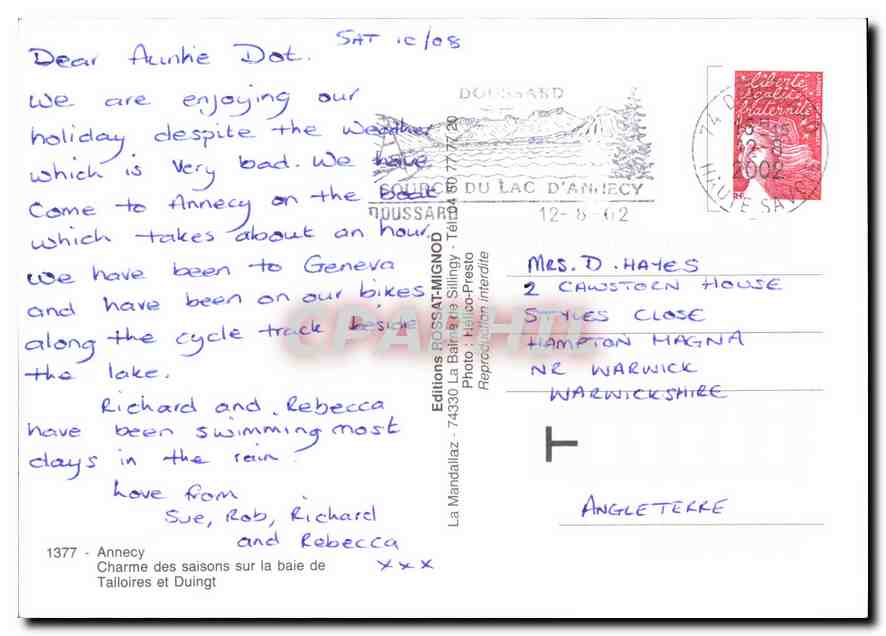 SAT 10/08
Dear Auntie Dot.
We are enjoying our
holiday despite the weather
which is very bad. We have
come to Annecy on the boat
which takes about an hour.
We have been to Geneva
and have been on our bikes
along the cycle track beside
the lake.
Richard and Rebecca
have been swimming most
days in the rain.
Love from
Sue, Rob, Richard
and Rebecca
x x x
1377 - Annecy
Charme des saisons sur la baie de
Talloires et Duingt
Editions ROSSAT-MIGNOD
La Mandallaz - 74330 La Balme de Sillingy - Tél. 04 50 77 77 20
Photo : Hélico-Presto
Reproduction interdite
CPARAMA
DOUSSARD
SOURCE DU LAC D'ANNECY
DOUSSARD 12-8-02
74 DOUSSARD
2002
HAUTE SAVOIE
liberté
égalité
fraternité
RF
MRS. D. HAYES
2 CAWSTORN HOUSE
STYLES CLOSE
HAMPTON MAGNA
NR WARWICK
WARWICKSHIRE
T
ANGLETERRE